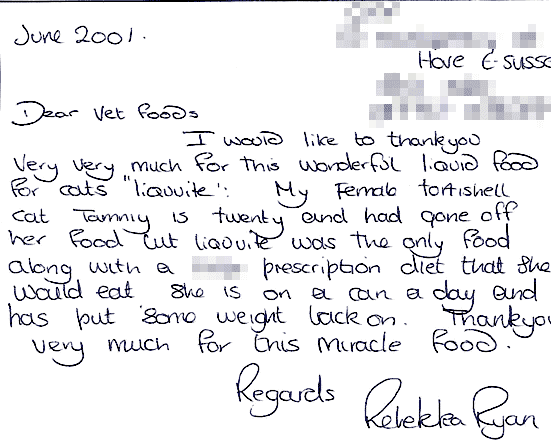 June 2001.
Hove E-susse
Dear Vet foods
I would like to thankyou
very very much for this wonderful liquid food
for cats "liquvite": My Female tortishell
cat Tammy is twenty and had gone off
her food but liquvite was the only food
along with a prescription diet that she
would eat She is on a can a day and
has put some weight back on. Thankyou
very much for this miracle food.
Regards
Rebekka Ryan